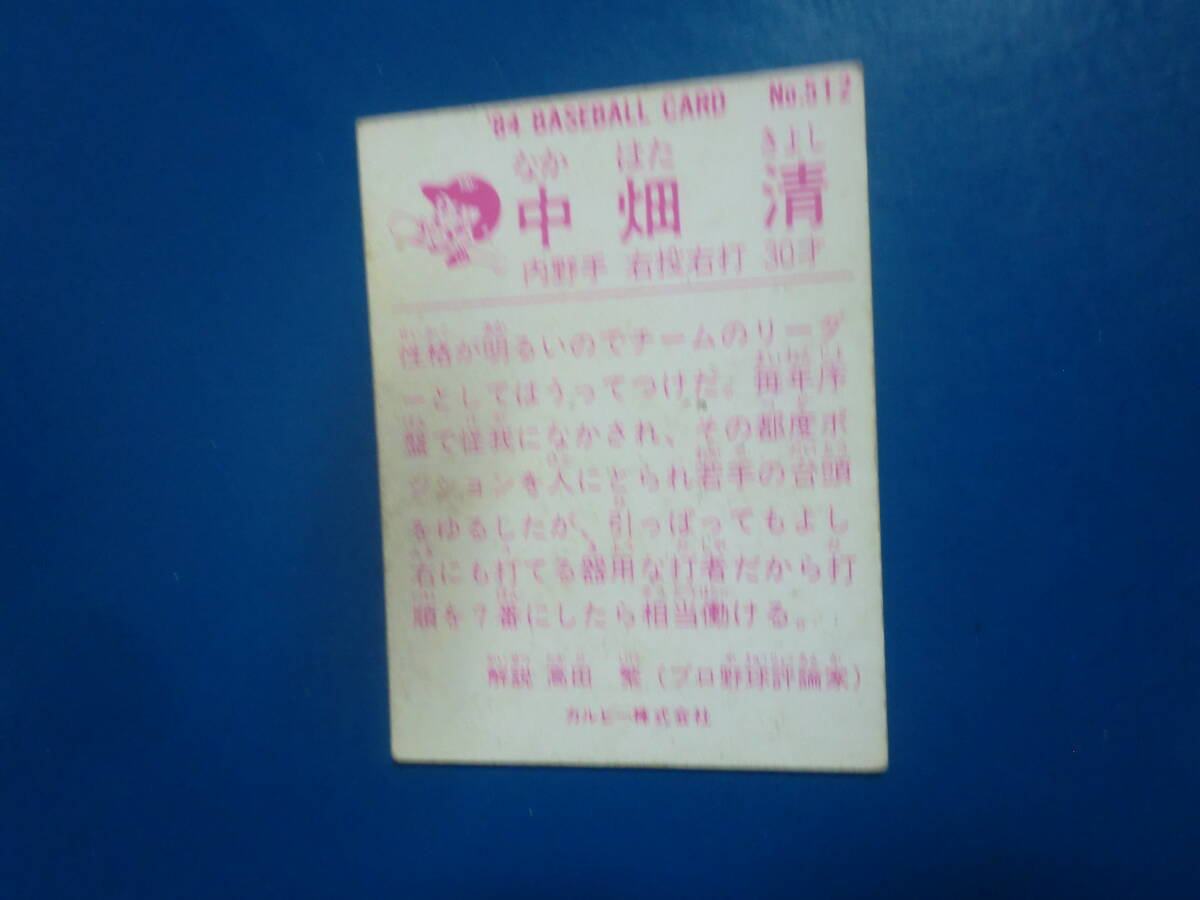 '84 BASEBALL CARD No.512
なか はた きよし
中畑 清
内野手 右投右打 30才
性格が明るいのでチームのリーダ
ーとしてはうってつけだ。毎年序
盤で怪我になかされ、その都度ポ
ジションを人にとられ若手の台頭
をゆるしたが、引っぱってもよし
右にも打てる器用な打者だから打
順を7番にしたら相当働ける。
解説 高田 繁(プロ野球評論家)
カルビー株式会社